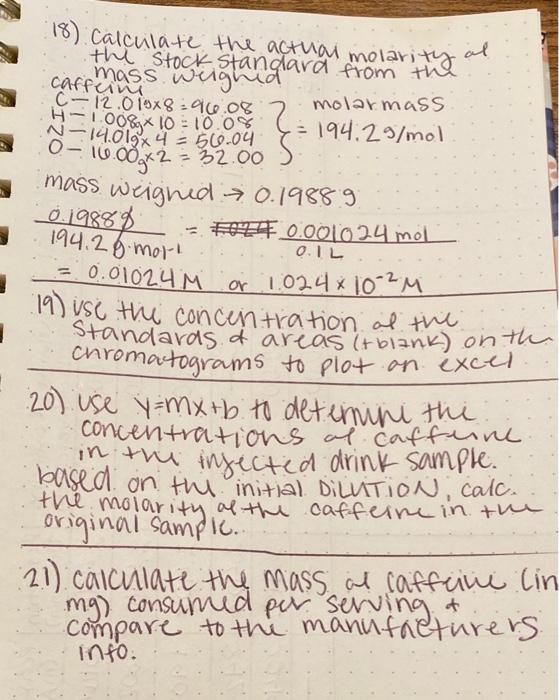 18) Calculate the actual molarity of
the stock standard from the
mass weighed
caffeine
C - 12.01g×8 = 96.08
H - 1.008g×10 = 10.08
N - 14.01g×4 = 56.04
O - 16.00g×2 = 32.00
} molar mass
= 194.2g/mol
mass weighed → 0.1988g
0.1988g
194.2g·mol-1
= 1.024 0.001024 mol
0.1L
= 0.01024M or 1.024×10-2M
19) use the concentration of the
standards & areas (+blank) on the
chromatograms to plot on excel
20) use y=mx+b to determine the
concentrations of caffeine
in the injected drink sample.
based on the initial DILUTION, calc.
the molarity of the caffeine in the
original sample.
21) calculate the mass of caffeine (in
mg) consumed per serving &
compare to the manufacturers
info.